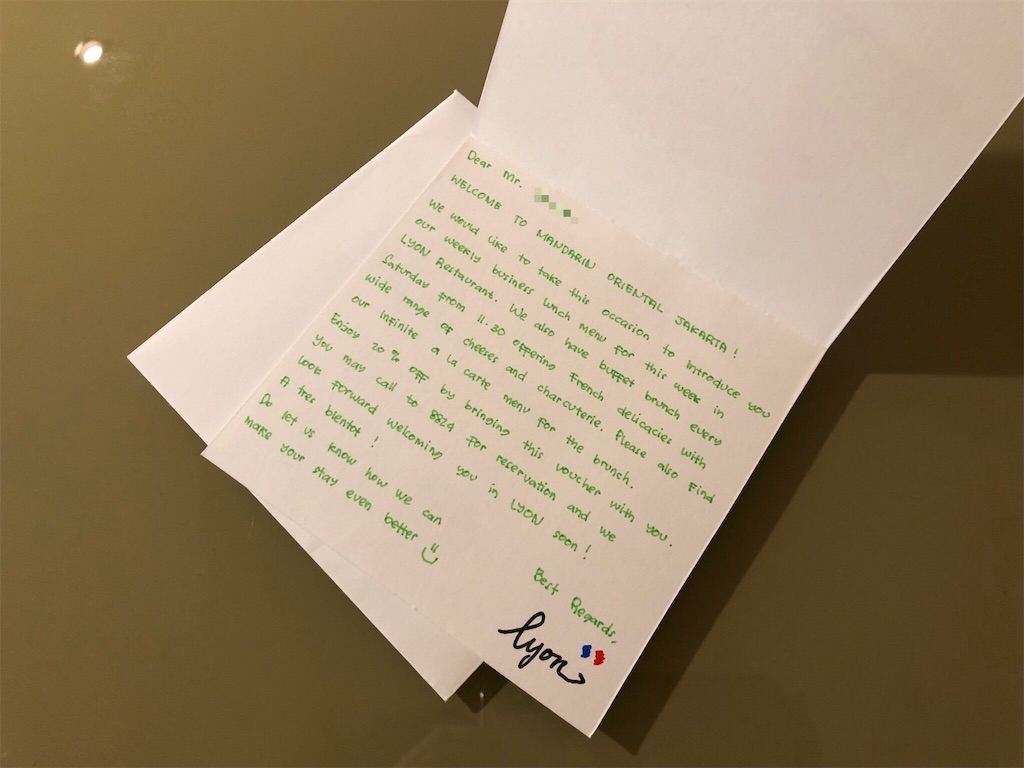 Dear Mr.
WELCOME TO MANDARIN ORIENTAL JAKARTA !
We would like to take this occasion to introduce you
our weekly business lunch menu for this week in
LYON Restaurant. We also have buffet brunch every
Saturday from 11.30 offering French delicacies with
wide range of cheeses and charcuterie. Please also find
our infinite a la carte menu for the brunch.
Enjoy 20 % off by bringing this voucher with you.
You may call to 8824 for reservation and we
look forward welcoming you in LYON soon !
A tres bientot !
Do let us know how we can
make your stay even better
Best Regards,
lyon